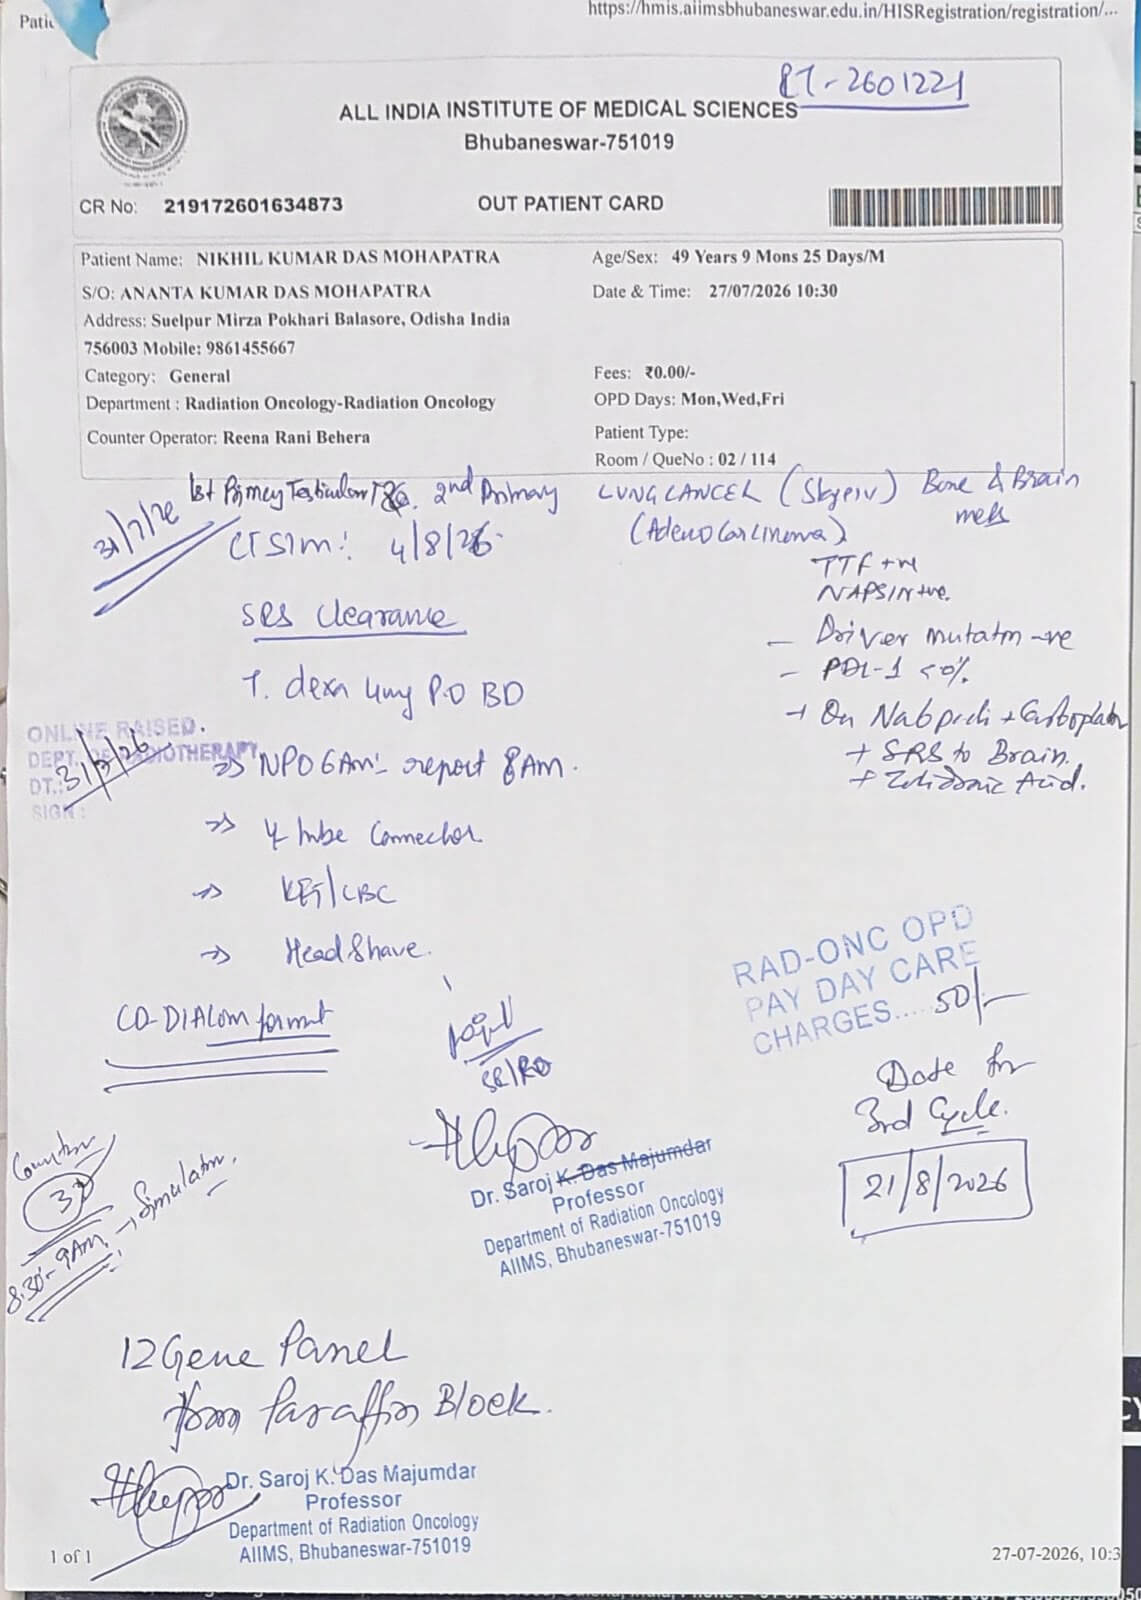 https://hmis.aiimsbhubaneswar.edu.in/HISRegistration/registration/...
RT-2601221
ALL INDIA INSTITUTE OF MEDICAL SCIENCES
Bhubaneswar-751019
CR No: 219172601634873
OUT PATIENT CARD
Patient Name: NIKHIL KUMAR DAS MOHAPATRA
Age/Sex: 49 Years 9 Mons 25 Days/M
S/O: ANANTA KUMAR DAS MOHAPATRA
Date & Time: 27/07/2026 10:30
Address: Suelpur Mirza Pokhari Balasore, Odisha India
756003 Mobile: 9861455667
Category: General
Fees: ₹0.00/-
Department : Radiation Oncology-Radiation Oncology
OPD Days: Mon,Wed,Fri
Counter Operator: Reena Rani Behera
Patient Type:
Room / QueNo : 02 / 114
31/7/26
1st Primary Testicular 2nd Primary LUNG CANCER Bone & Brain
mets
(Adenocarcinoma)
CT SIM: 4/8/26
TTF +ve
NAPSIN +ve.
SRS Clearance
- Driver mutatm -ve
- PDL-1 <0%
T. dexa 4mg PO BD
→ On Nabpacli + Carboplatin
+ SRS to Brain.
+ Zolidronic Acid.
ONLINE RAISED.
DEPT. OF RADIOTHERAPY
DT.: 31/7/26
SIGN :
⇒ NPO 6AM - report 8AM.
⇒ Y tube Connector
⇒ KFT/CBC
⇒ Head Shave.
RAD-ONC OPD
PAY DAY CARE
CHARGES..... 50/-
CD-DIACOM format
SR/RO
Date for
3rd Cycle.
21/8/2026
Counter
8.30-9AM → Simulator.
Dr. Saroj K. Das Majumdar
Professor
Department of Radiation Oncology
AIIMS, Bhubaneswar-751019
12 Gene Panel
from Paraffin Block.
Dr. Saroj K. Das Majumdar
Professor
Department of Radiation Oncology
AIIMS, Bhubaneswar-751019
1 of 1
27-07-2026, 10:3